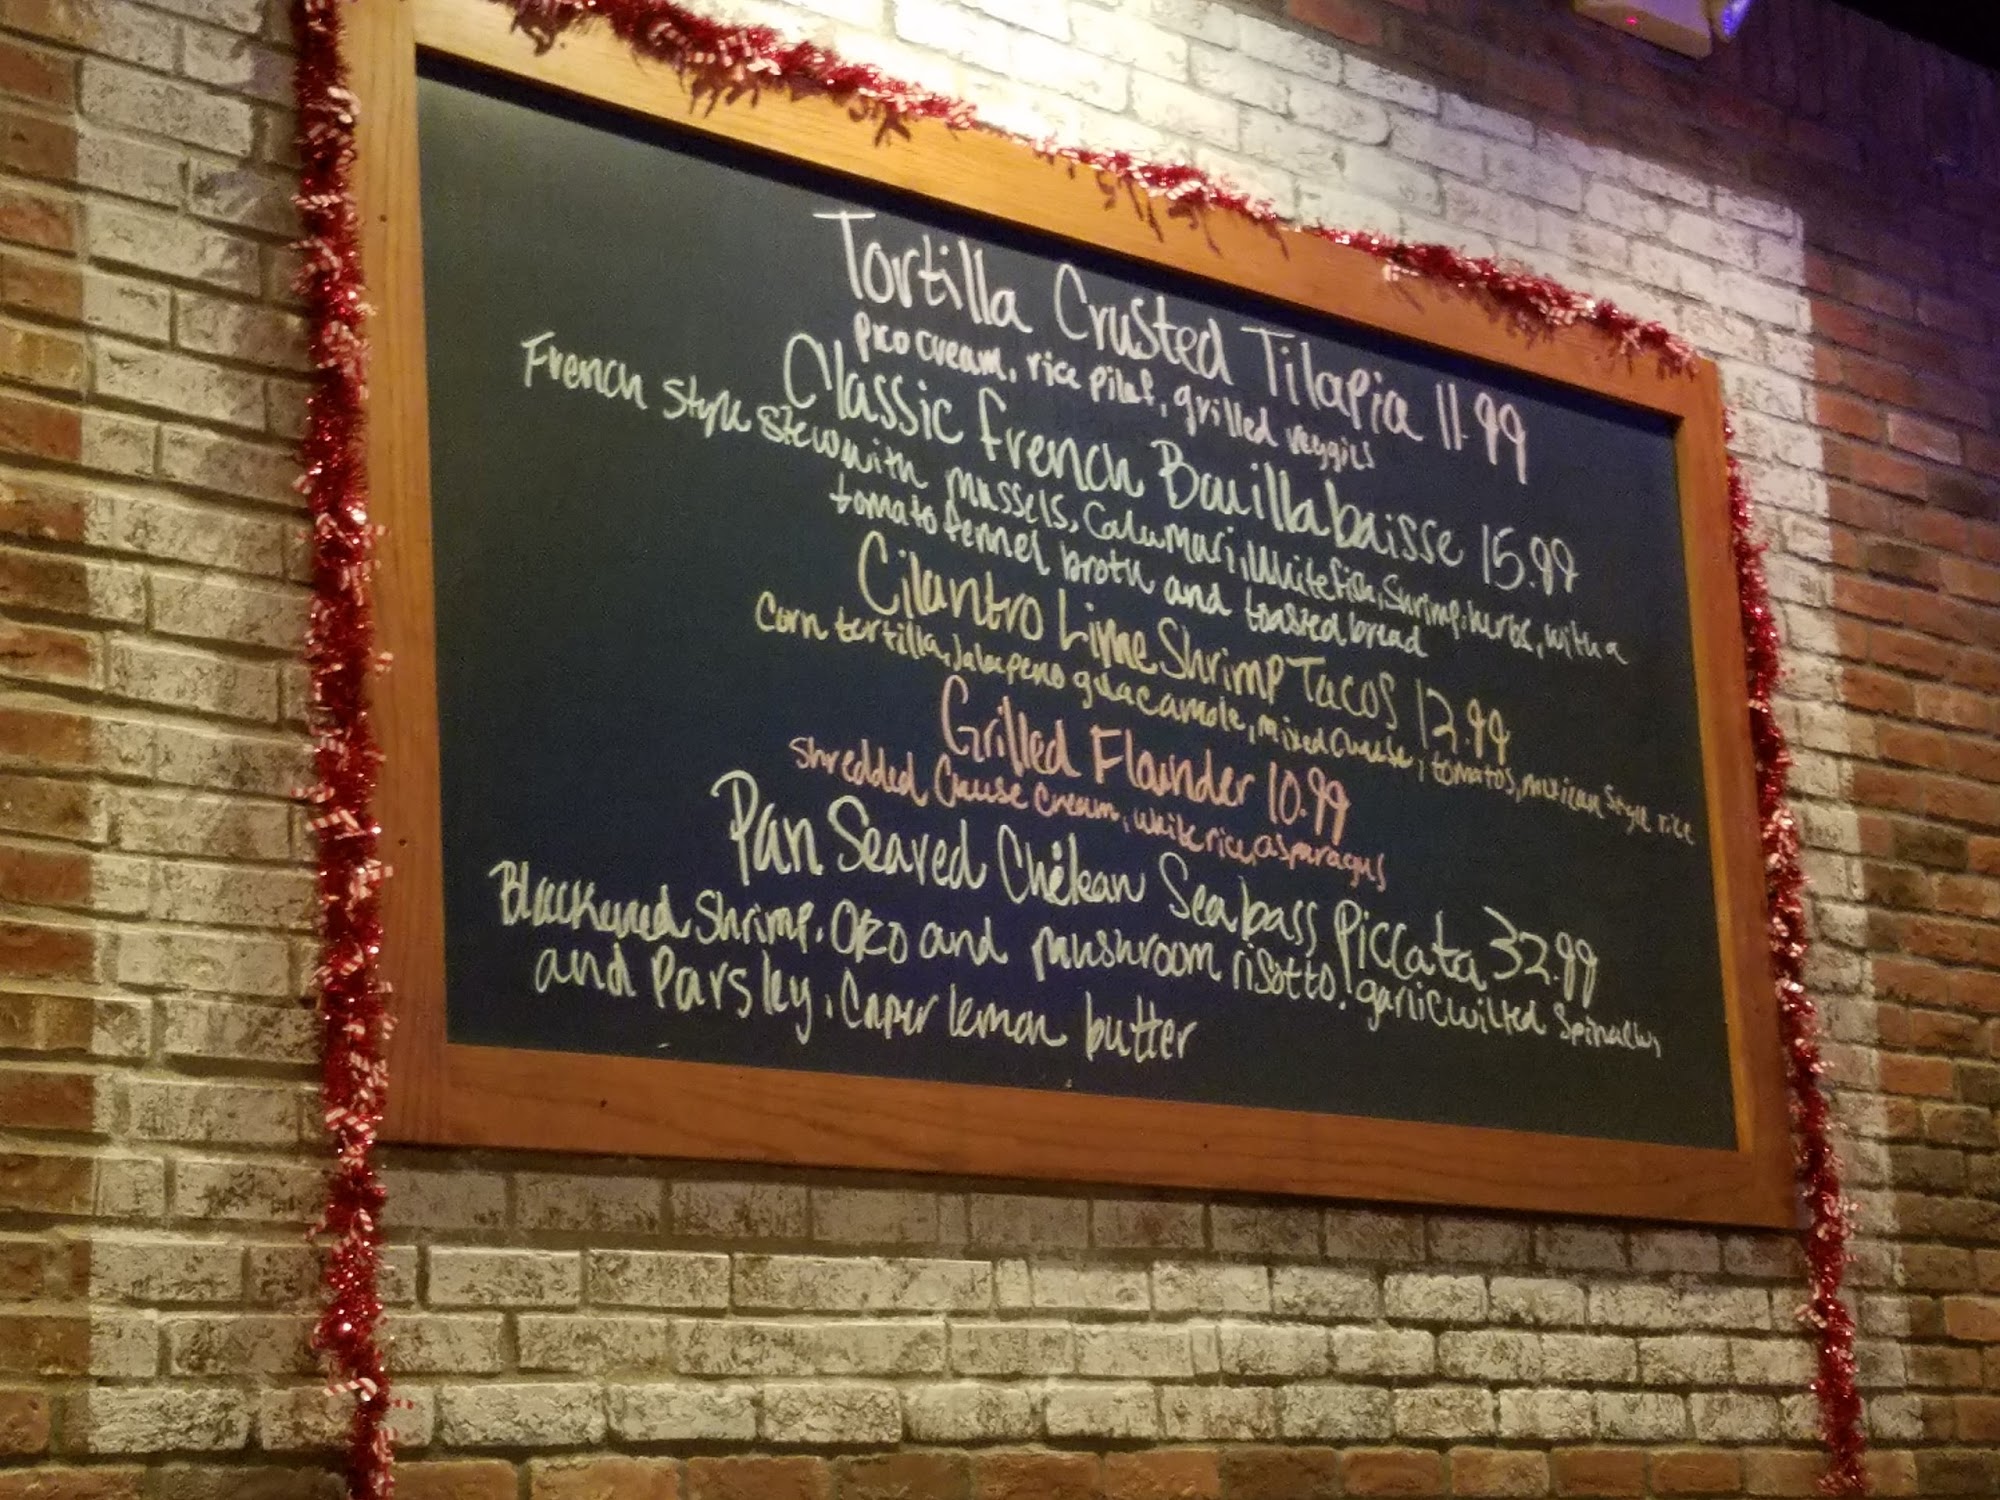 Tortilla Crusted Tilapia 11.99
pico cream, rice pilaf, grilled veggies
Classic French Bouillabaisse 15.99
French Style Stew with mussels, Calamari, Whitefish, Shrimp, herbs, with a
tomato fennel broth and toasted bread
Cilantro Lime Shrimp Tacos 12.99
Corn tortilla, Jalapeno guacamole, mixed Cheese, tomatos, mexican Style rice
Grilled Flounder 10.99
Shredded Cheese Cream, White rice, asparagus
Pan Seared Chilean Seabass Piccata 32.99
Blackened Shrimp, Orzo and mushroom risotto, garlic wilted Spinach,
and Parsley, Caper lemon butter